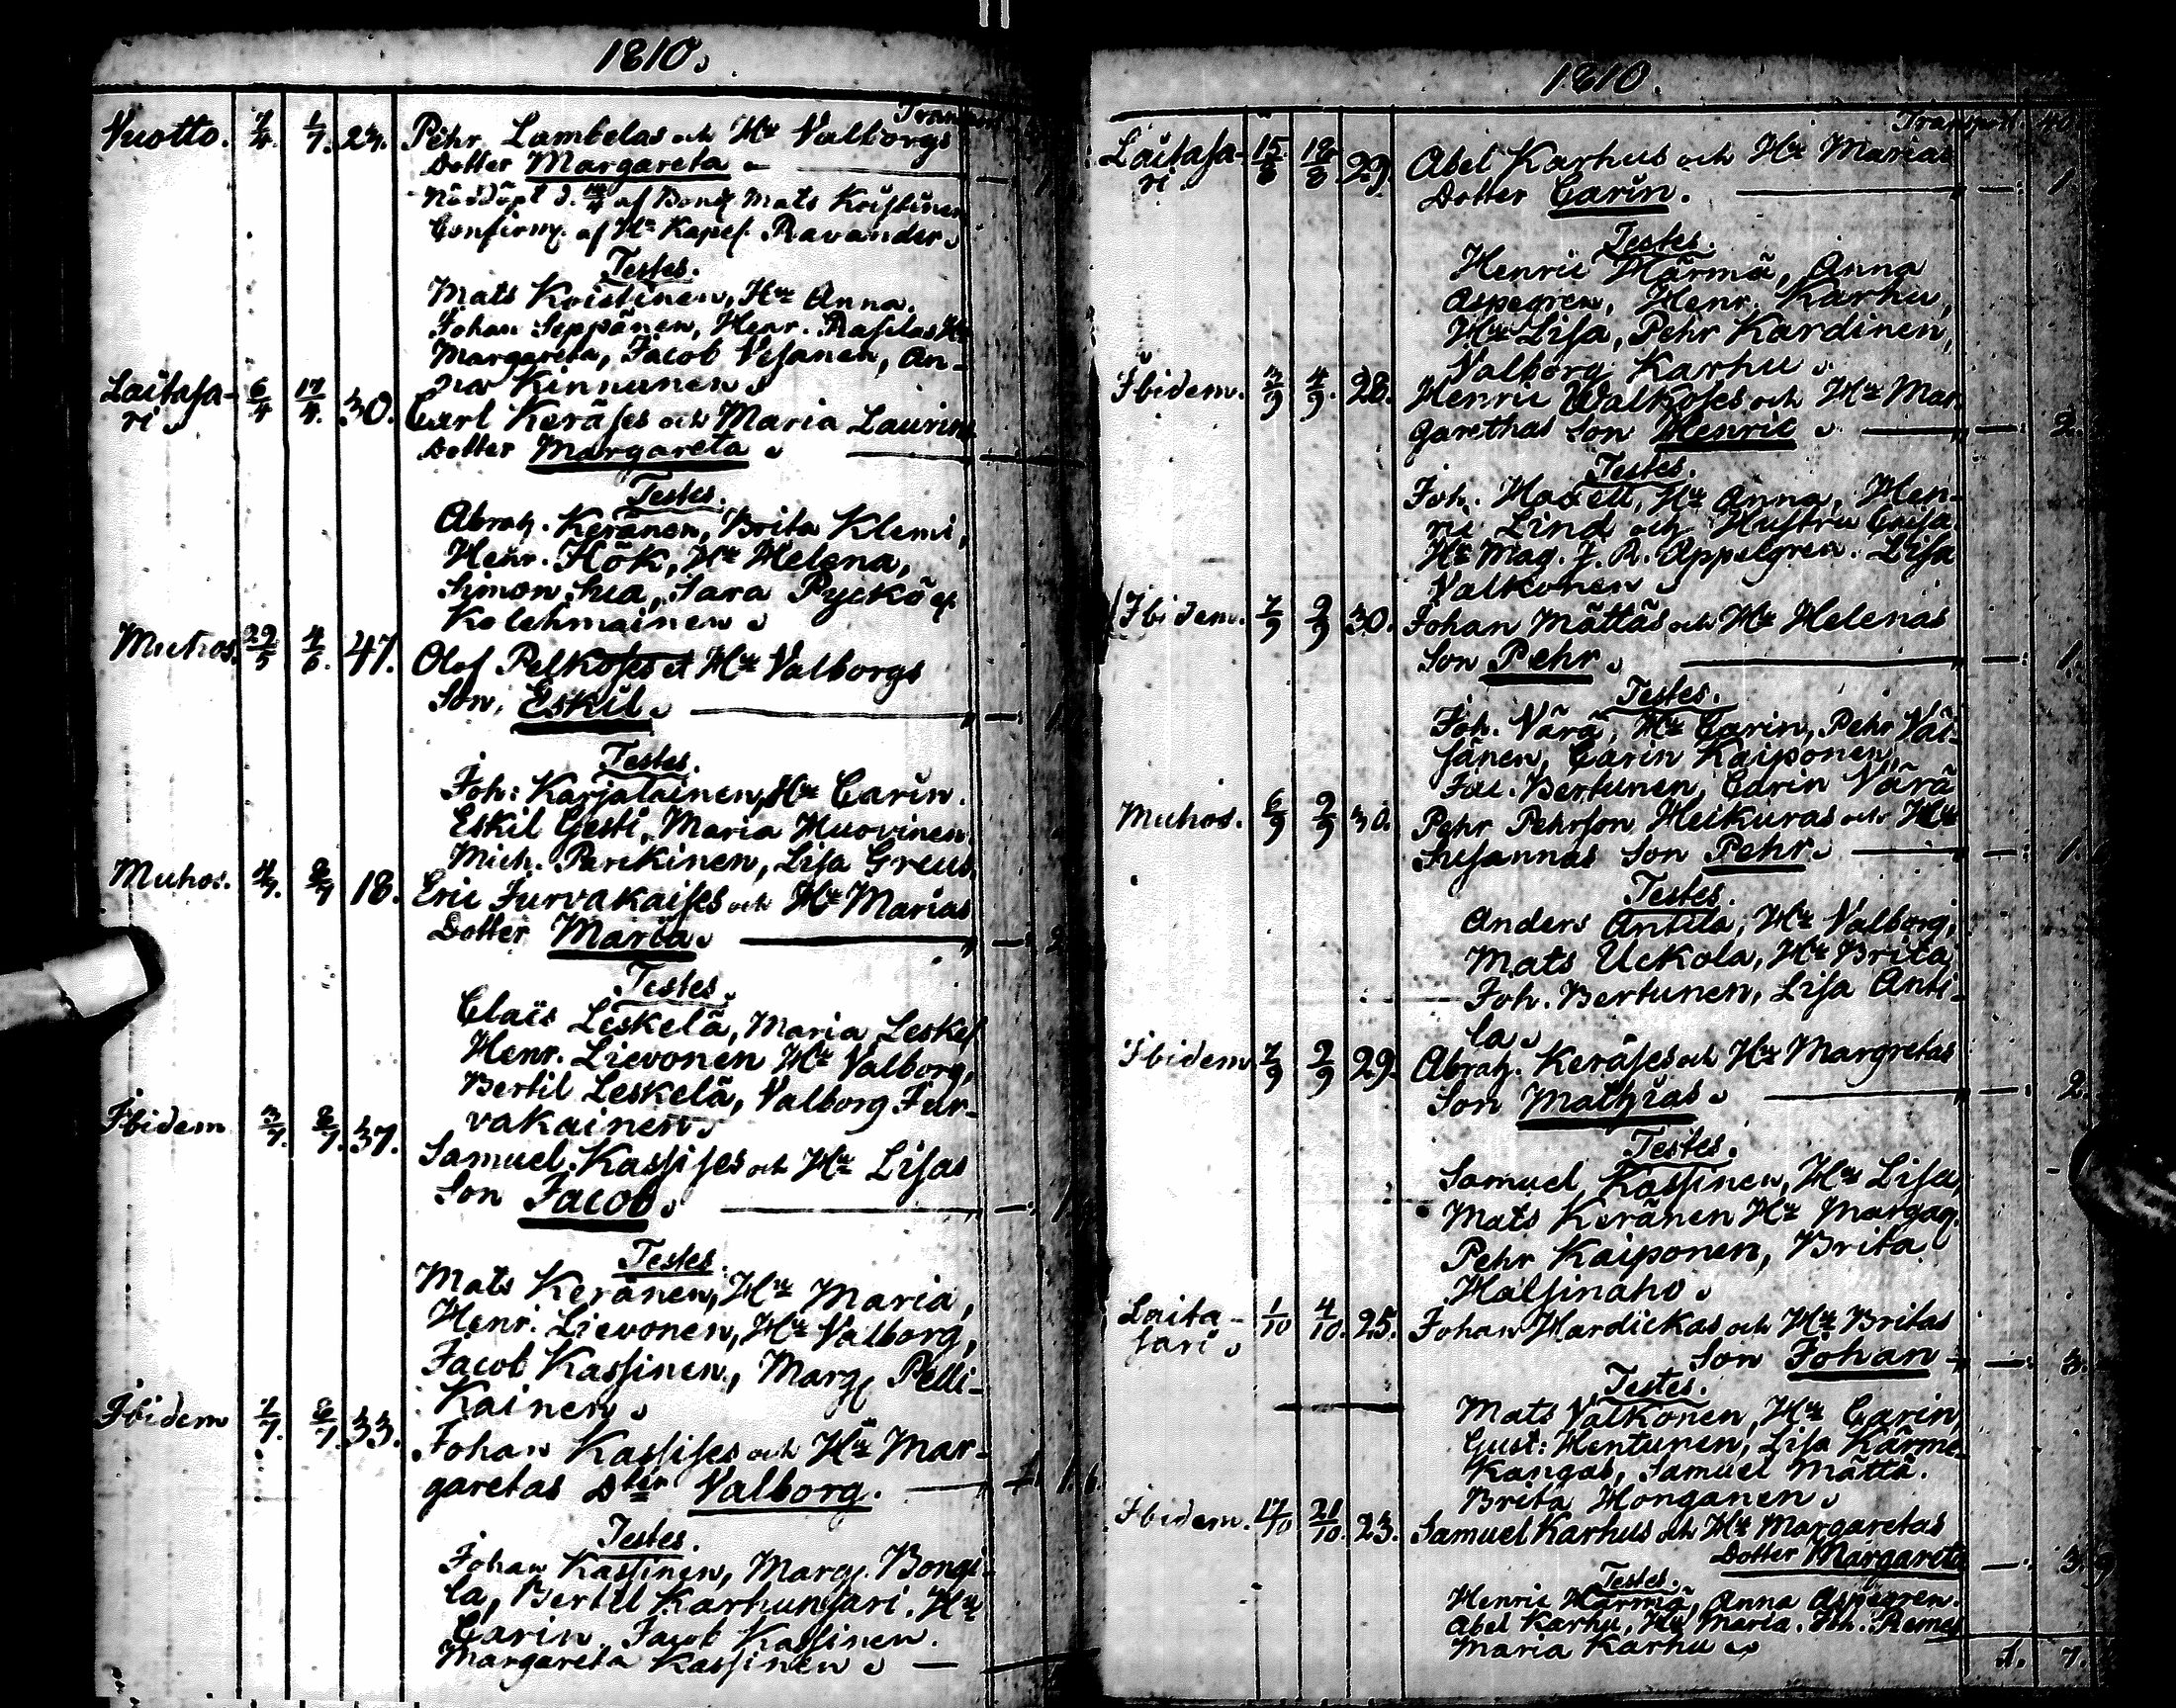 1810.
Transport
Vuotto. 7/4. 1/7. 23. Pehr Lambelas och Hu Valborgs
Dotter Margareta
Nöddöpt d. 14/4 af Bond Mats Koistinen
Confirm. af Hr Kapel. Ravander.
Testes.
Mats Koistinen, Hu Anna.
Johan Seppänen, Henr. Rasilas Hu
Margareta, Jacob Vesanen, An-
na Kinnunen.
Laitasa- 6/4 17/4. 30. Carl Keräses och Maria Laurin
ri. Dotter Margareta
Testes.
Abrah. Keränen, Brita Klemi,
Henr. Hök, Hu Helena,
Simon Sua, Sara Pyckö
Kolehmainen.
Muhos. 29/5 4/6. 47. Olof Pelkoses et Hu Valborgs
Son, Eskil.
Testes.
Joh: Karjalainen, Hu Carin.
Eskil Gesti, Maria Huovinen
Mich. Parckinen, Lisa Greus.
Muhos. 4/7. 8/7 18. Eric Jurvakaises och Hu Marias
Dotter Maria.
Testes.
Claës Leskelä, Maria Leskel
Henr. Lievonen Hu Valborg,
Bertil Leskelä, Valborg Jur-
vakainen.
Ibidem 3/7. 8/7. 37. Samuel Kassises och Hu Lisas
Son Jacob.
Testes.
Mats Keränen, Hu Maria,
Henr. Lievonen, Hu Valborg,
Jacob Kassinen, Marg. Pelli-
kainen.
Ibidem 7/7. 8/7. 33. Johan Kassises och Hu Mar-
garetas Dter Valborg.
Testes.
Johan Kassinen, Marg. Bongi-
la, Bertil Karhunsari. Hu
Carin. Jacob Kassinen.
Margareta Kassinen.
1810.
Transport.
Laitasa- 15/8 18/8 29. Abel Karhus och Hu Marias
ri. Dotter Carin. 1.
Testes.
Henric Härmä, Anna
Aspegren, Henr. Karhu,
Hu Lisa, Pehr Kardinen,
Valborg Karhu.
Ibidem. 3/9 4/9. 28. Henric Walkoses och Hu Mar-
garethas Son Henric. 2.
Testes.
Joh. Haxell, Hu Anna, Hen-
ric Lind och Hustru Caisa.
Hr Mag. J. R. Appelgren. Lisa
Valkonen
Ibidem. 7/9 9/9 30. Johan Mättäs och Hu Helenas
Son Pehr. 1.
Testes.
Joh. Värä, Hu Carin, Pehr Väi-
sänen, Carin Kaiponen,
Jac. Bertunen, Carin Värä
Muhos. 6/9 9/9 30. Pehr Pehrson Heikuras och Hu
Susannas Son Pehr. 1.
Testes.
Anders Antila, Hu Valborg,
Mats Uckola, Hu Brita
Joh. Bertunen, Lisa Anti-
la.
Ibidem. 7/9 9/9 29. Abrah. Keräses och Hu Margretas
Son Mathias. 2.
Testes.
Samuel Kassinen, Hu Lisa,
Mats Keränen Hu Margar.
Pehr Kaiponen, Brita
Halsinaho.
Laita- 1/10 4/10. 25. Johan Hardickas och Hu Britas
sari. Son Johan 3.
Testes.
Mats Valkonen, Hu Carin,
Gust: Hentunen, Lisa Kärme-
kangas, Samuel Mättä.
Brita Honganen.
Ibidem. 17/10 21/10. 23. Samuel Karhus och Hu Margaretas
Dotter Margareta 3.
Testes.
Henric Härmä, Anna Aspegren.
Abel Karhu, Hu Maria. Joh. Remes
Maria Karhu
1. 7.